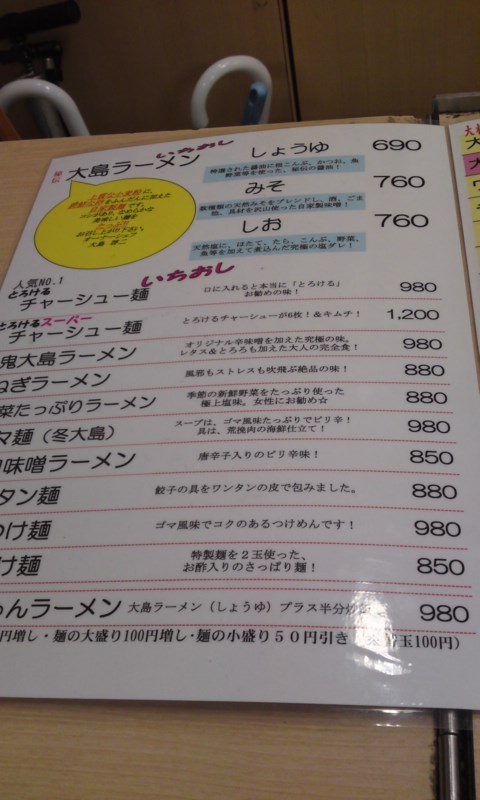 秘伝
大島ラーメン
いちおし
しょうゆ 690
特選された醤油に根こんぶ、かつお、魚
野菜等を使った、秘伝の醤油!
みそ 760
数種類の天然みそをブレンドし、酒、ごま
具材を沢山使った自家製味噌!
しお 760
天然塩に、ほたて、たら、こんぶ、野菜、
魚等を加えて煮込んだ究極の塩ダレ!
上質な小麦粉に、
をふんだんに加えた
自家製麺です。
コシがあり、なめらかな
美味しい麺を
たっぷり
お召し上がり下さい。
オーナーシェフ
大島
人気NO.1
いちおし
とろける
チャーシュー麺 口に入れると本当に「とろける」
お勧めの味! 980
とろけるスーパー
チャーシュー麺 とろけるチャーシューが6枚!&キムチ! 1,200
鬼大島ラーメン オリジナル辛味噌を加えた究極の味。
レタス&とろろも加えた大人の完全食! 980
ねぎラーメン 風邪もストレスも吹飛ぶ絶品の味! 880
菜たっぷりラーメン 季節の新鮮野菜をたっぷり使った
極上塩味。女性にお勧め☆ 880
マ麺(冬大島) スープは、ゴマ風味たっぷりでピリ辛!
具は、荒挽肉の海鮮仕立て! 980
味噌ラーメン 唐辛子入りのピリ辛味! 850
タン麺 餃子の具をワンタンの皮で包みました。 880
つけ麺 ゴマ風味でコクのあるつけめんです! 980
け麺 特製麺を2玉使った、
お酢入りのさっぱり麺! 850
ゃんラーメン 大島ラーメン(しょうゆ)プラス半分炒飯 980
円増し・麺の大盛り100円増し・麺の小盛り50円引き(替玉100円)